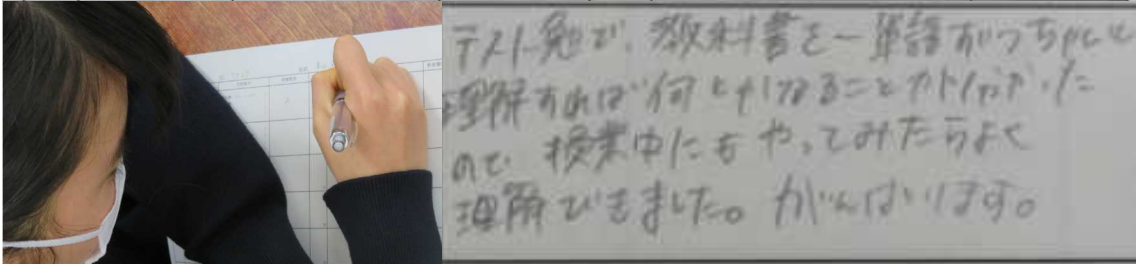 テスト勉で、教科書を一単語ずつちゃんと
理解すれば何とかなることがわかった
ので 授業中にもやってみたらよく
理解できました。がんばります。